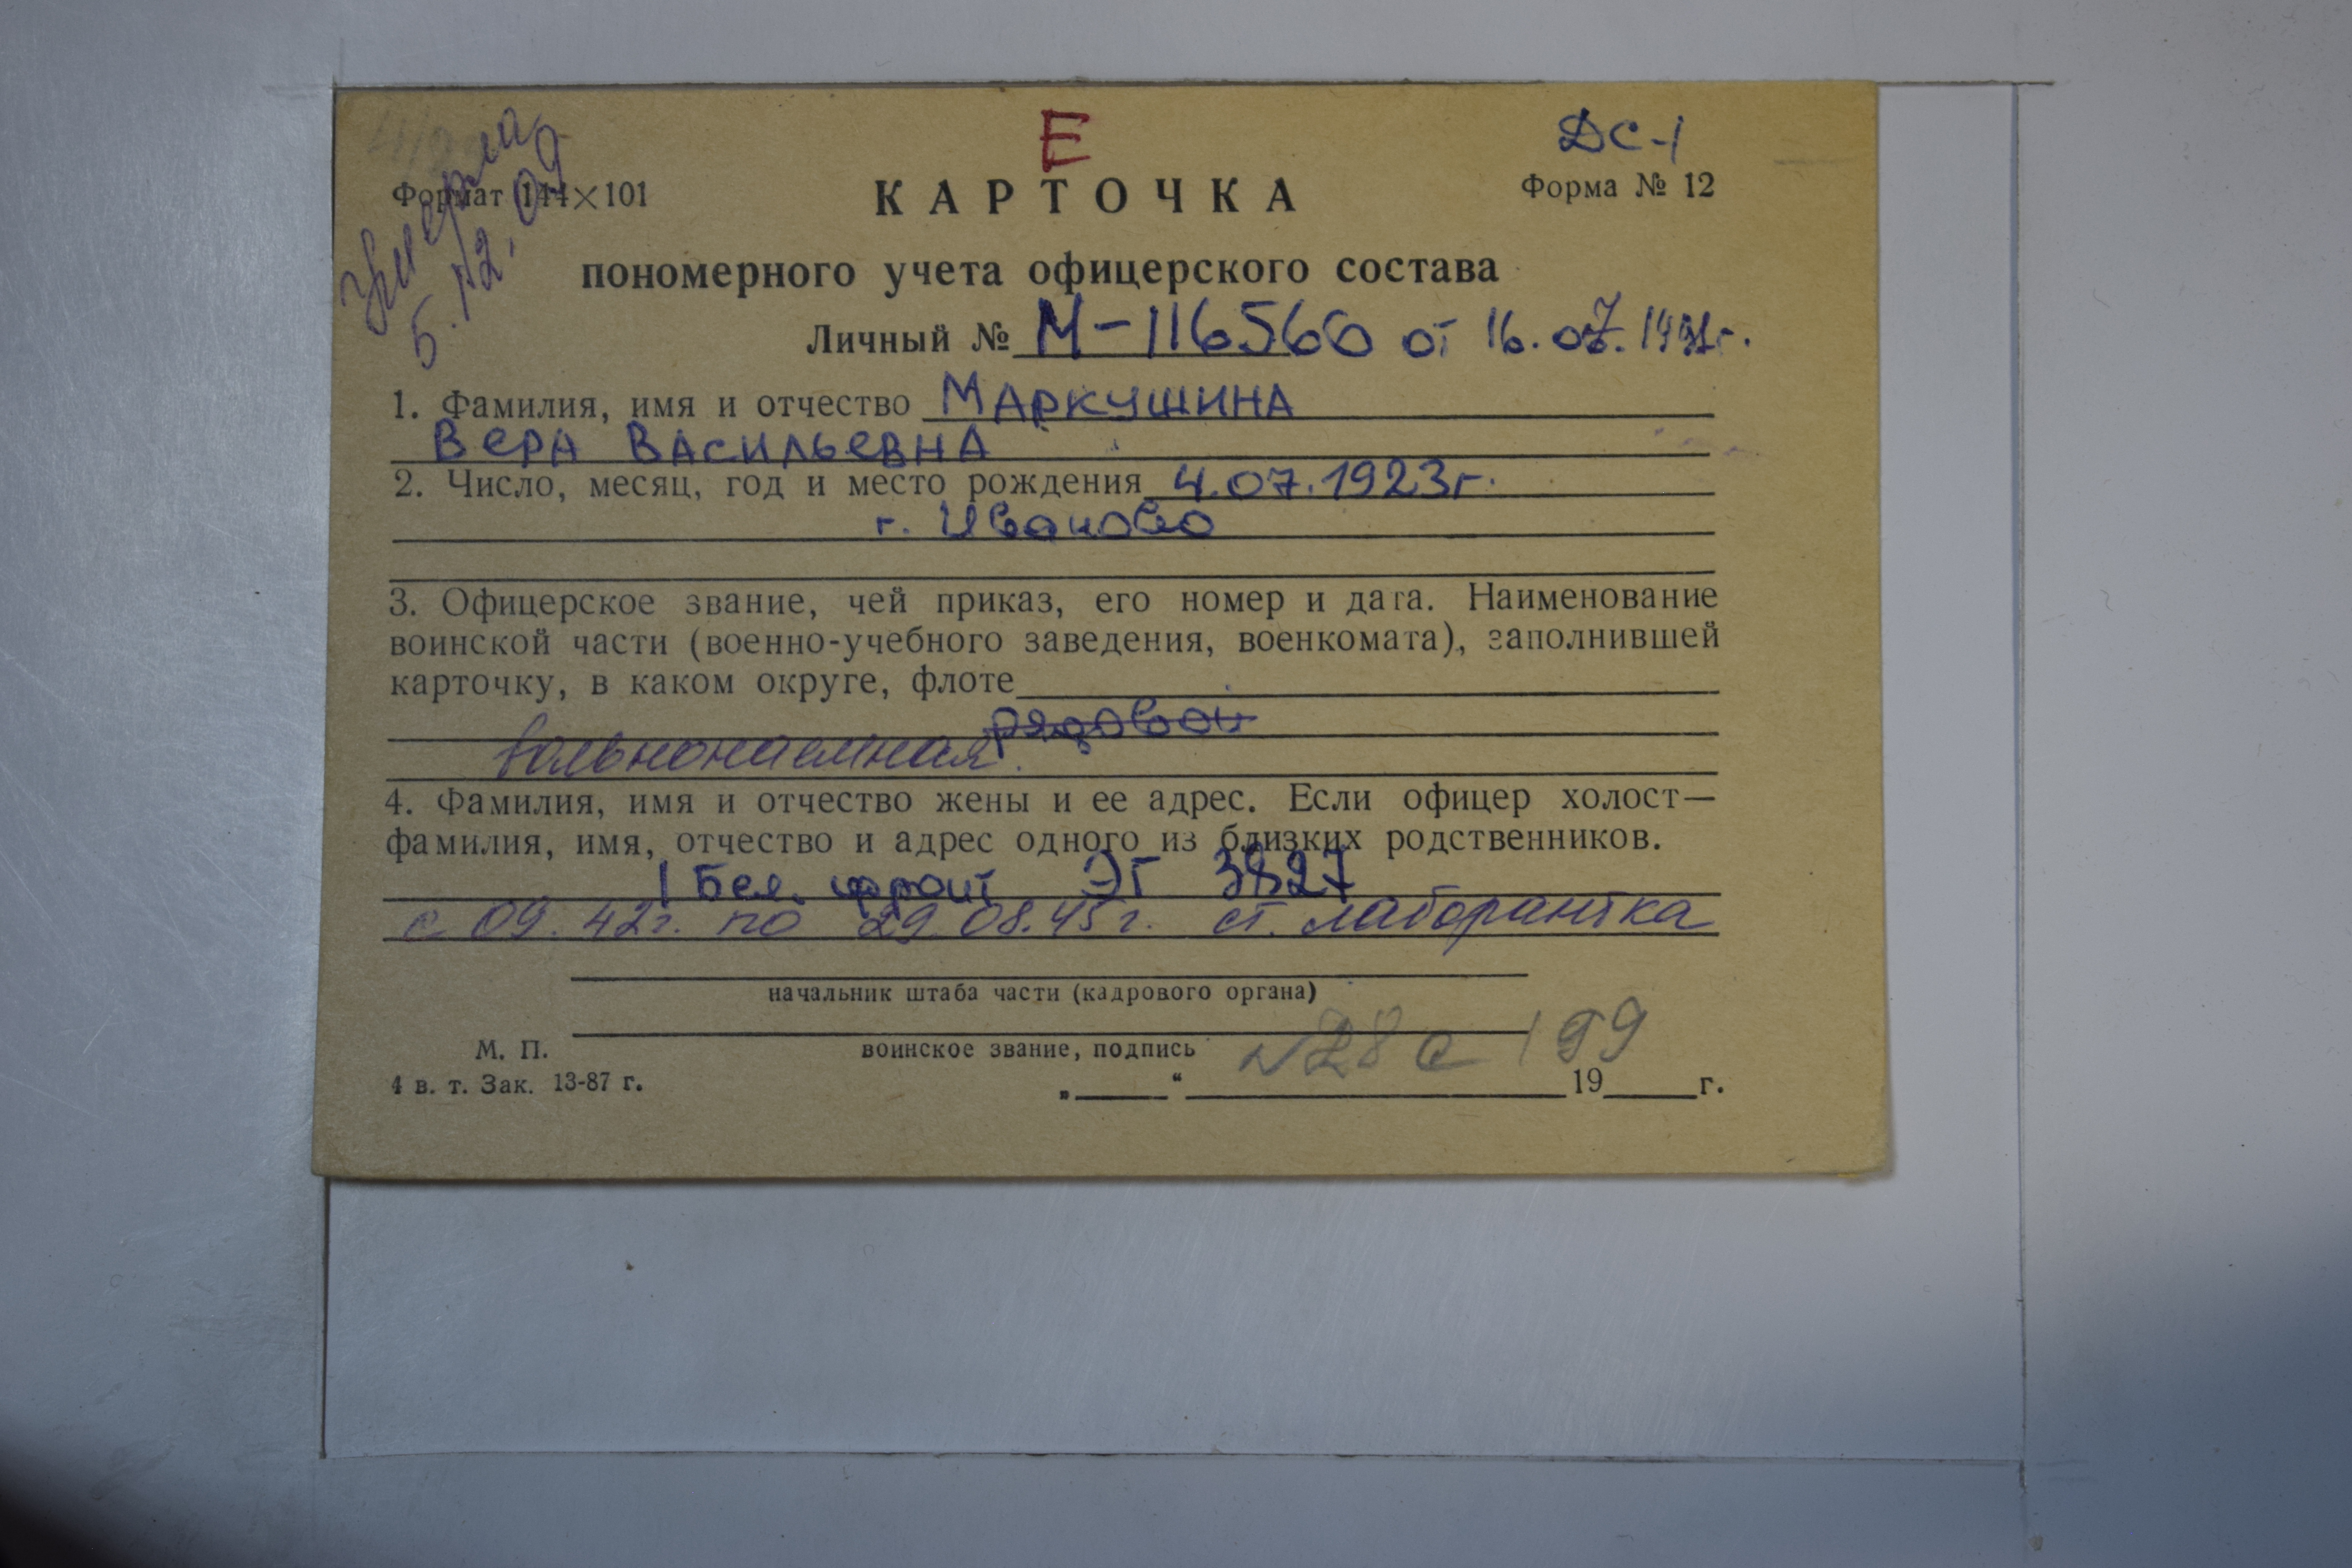 умерла
5.12.09
Е
ДС-1
Формат 144×101
КАРТОЧКА
Форма № 12
пономерного учета офицерского состава
Личный № М-116560 от 16.07.1991г.
1. Фамилия, имя и отчество Маркушина
Вера Васильевна
2. Число, месяц, год и место рождения 4.07.1923г.
г. Иваново
3. Офицерское звание, чей приказ, его номер и дата. Наименование
воинской части (военно-учебного заведения, военкомата), заполнившей
карточку, в каком округе, флоте
рядовой
вольнонаемная.
4. Фамилия, имя и отчество жены и ее адрес. Если офицер холост—
фамилия, имя, отчество и адрес одного из близких родственников.
1 Бел. фронт ЭГ 3827
с 09.42г. по 29.08.45г. ст. лаборантка
начальник штаба части (кадрового органа)
М. П.
воинское звание, подпись
4 в. т. Зак. 13-87 г.
„ “ 19 г.